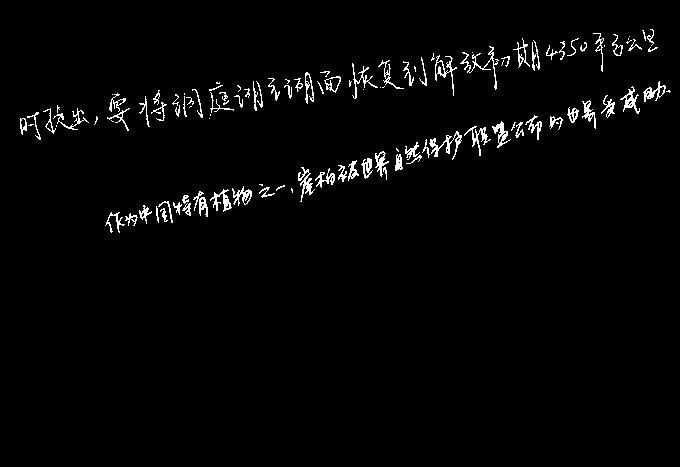 时提出,要将洞庭湖主湖面恢复到解放初期4350平方公里
作为中国特有植物之一、崖柏被世界自然保护联盟公布的世界受威胁、